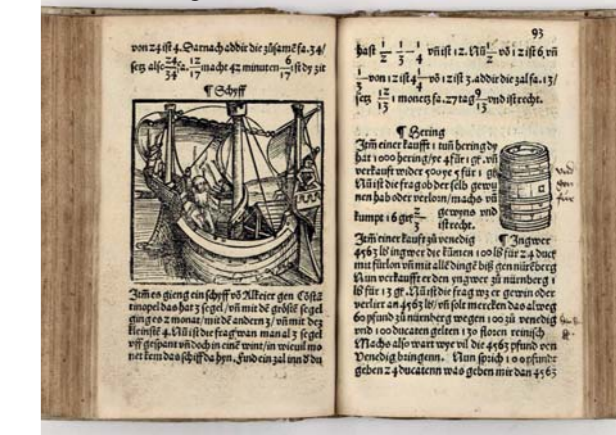 von 24 ist 4. Darnach addir die zůsamē fa. 34/
setz also 24/34 fa. 12/17 macht 42 minuten 6/17 ist dy zit
¶ Schyff
Itm es gieng ein schyff vō Alkeier gen Cōstā
tinopel das hat 3 segel/vnd mit dē gröstē segel
ging es 2 monat/mit dē andern 3/vñ mit dez
kleinstē 4. Nū ist die frag wan man al 3 segel
vff gespant vñ doch in einē wint/in wieuil mo
net kem das schiff da hyn. Find ein zal inn d du
93
hast 1/2 1/3 1/4 vñ ist 12. Nū 1/2 vō 12 ist 6 vñ
1/3 von 12 ist 4 1/4 vō 12 ist 3. addir die zal fa. 13/
setz 12/13 1 monetz fa. 27 tag 9/13 vnd ist recht.
¶ Hering
Itm einer kaufft 1 tuñ hering dy
hat 1000 hering/ye 4 für 1 gř. vñ
verkauft wider 500 ye 5 für 1 gř
Nū ist die frag ob der selb gewu
nen hab oder verlorn/machs vñ
kumpt 16 2/3 gewyns vnd
ist recht.
Itm einer kauft zů venedig ¶ Ingwer
4563 lb ingwer die kūmen 100 lb für 24 duct
mit fürlon vñ mit allē dingē biß gen nürēberg
Nun verkaufft er den yngwer zů nürnberg 1
lb für 13 gř. Nū ist die frag wz er gewin oder
verlier an 4563 lb/vñ solt mercken das alweg
60 pfund zů nürnberg wegen 100 zů venedig
vnd 100 ducaten gelten 130 floren reinisch
Machs also wart wye vil die 4563 pfund von
Venedig bringenn. Nun sprich 100 pfundt
geben 24 ducatenn was geben mir dan 4563